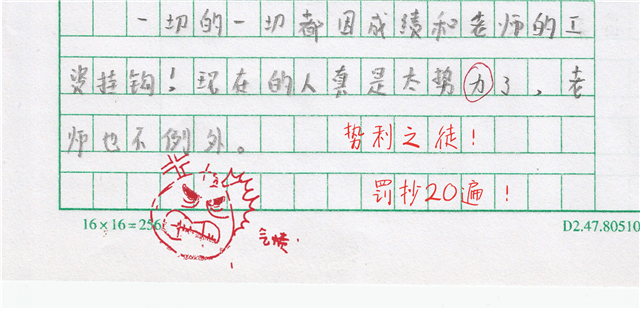 一切的一切都因成绩和老师的工
资挂钩！现在的人真是太势力了，老
师也不例外。 势利之徒！
罚抄20遍！
16×16=256 D2.47.80510
气愤